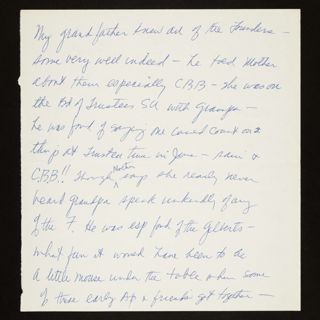 My grandfather knew all of the Founders -
some very well indeed - he told Mother
about them especially C.B.B - she was on
the Bd of Trustees SU with Grandpa -
he was fond of saying one could count on 2
things at Trustee time in June - rain &
C.B.B!! Though Mother says she nearly never
heard Grandpa speak unkindly of any
of the F. He was esp fond of the Gilberts -
what fun it would have been to be
a little mouse under the table when some
of those early AΦ & friends got together -